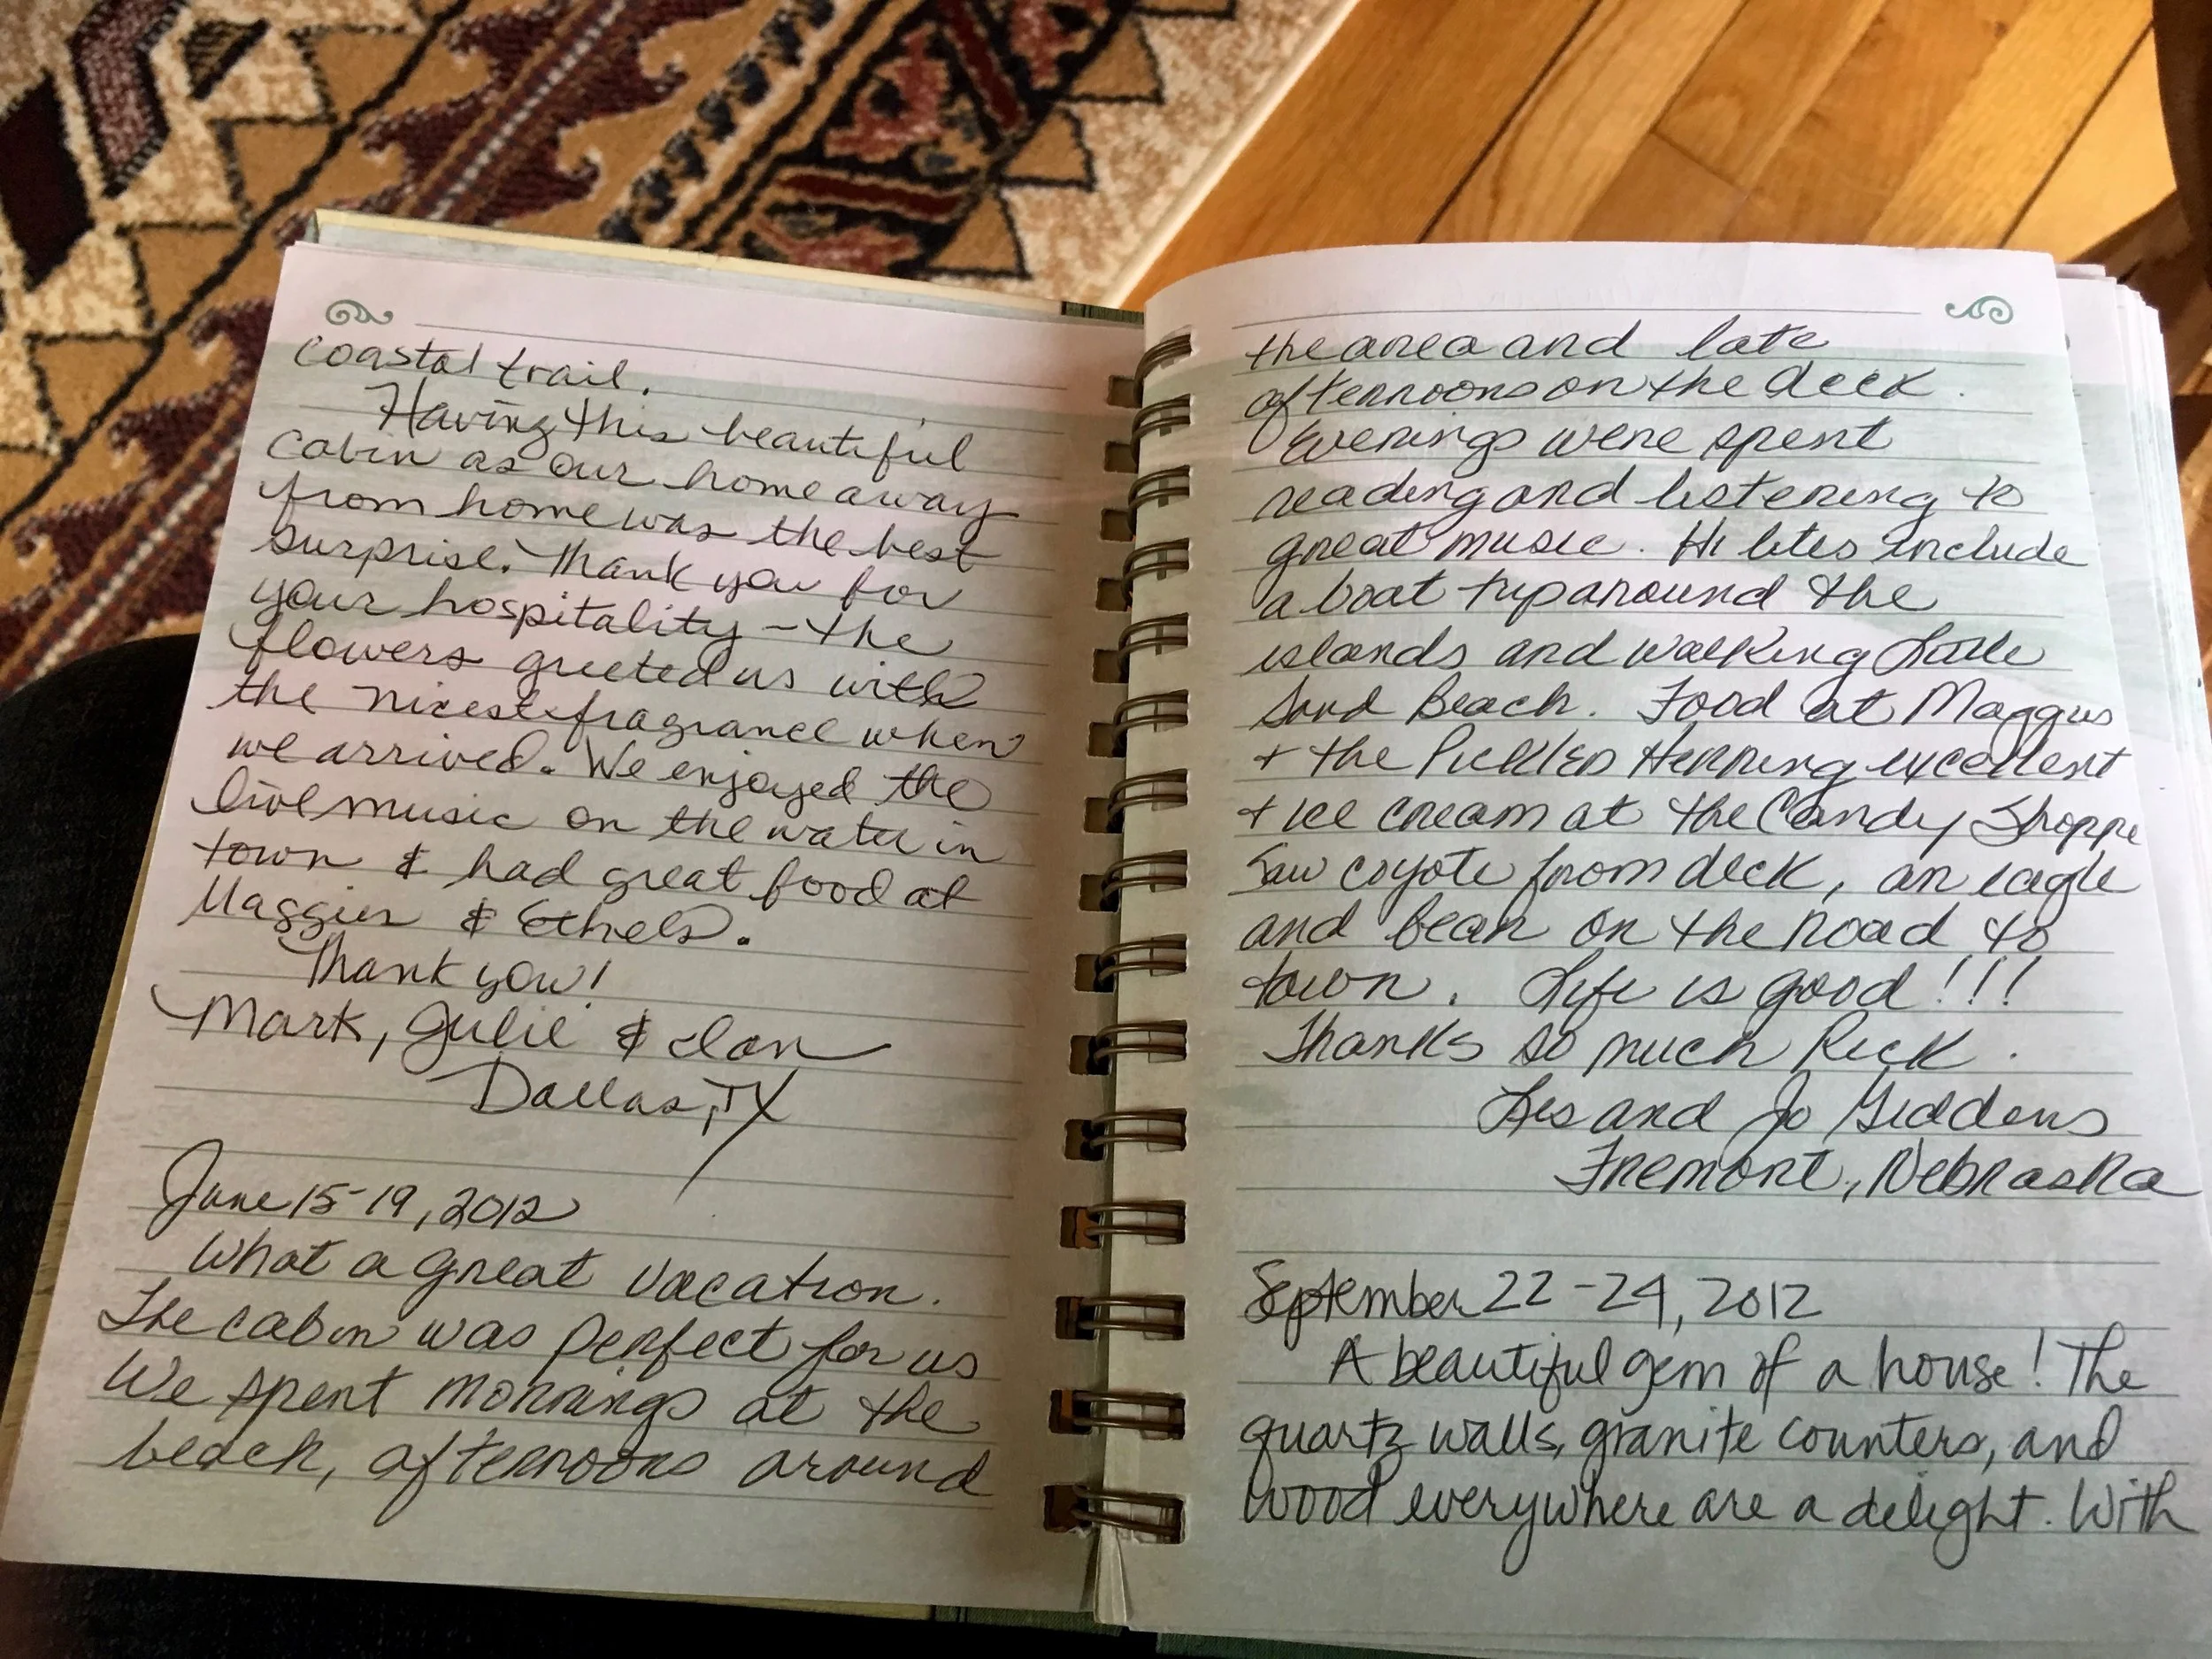 coastal trail.
Having this beautiful
cabin as our home away
from home was the best
surprise. Thank you for
your hospitality - the
flowers greeted us with
the nicest fragrance when
we arrived. We enjoyed the
live music on the water in
town & had great food at
Maggies & Ethels.
Thank you!
Mark, Julie & Ian
Dallas, TX
June 15-19, 2012
What a great vacation.
The cabin was perfect for us
We spent mornings at the
beach, afternoons around
the area and late
afternoons on the deck.
Evenings were spent
reading and listening to
great music. Hi lites include
a boat trip around the
islands and walking Little
Sand Beach. Food at Maggies
+ the Pickled Herring excellent
+ ice cream at the Candy Shoppe
Saw coyote from deck, an eagle
and bear on the road to
town. Life is good!!!
Thanks so much Rick.
Les and Jo Giddens
Fremont, Nebraska
September 22-24, 2012
A beautiful gem of a house! The
quartz walls, granite counters, and
wood everywhere are a delight. With